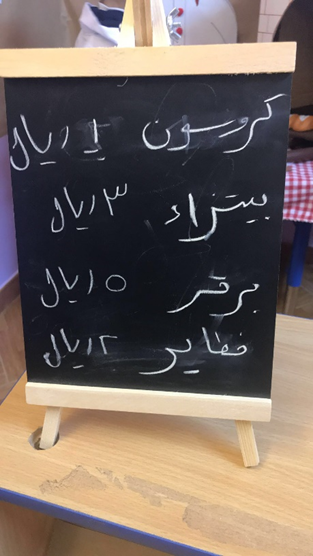 كروسون ريال
بيتزاء ٣ ريال
برقر ٥ ريال
فطاير ٢ ريال